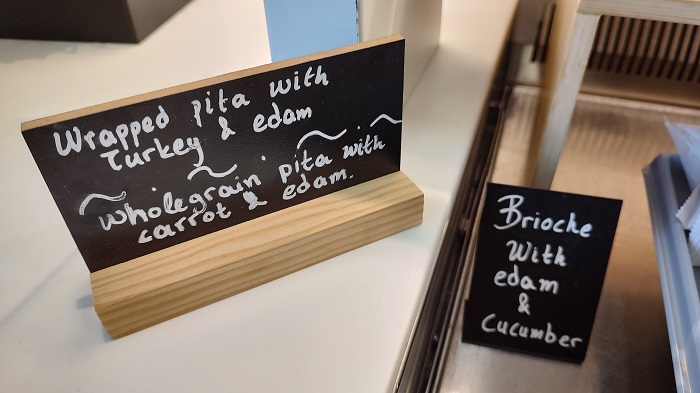 Wrapped pita with
Turkey & edam
wholegrain pita with
carrot & edam.
Brioche
With
edam
&
Cucumber